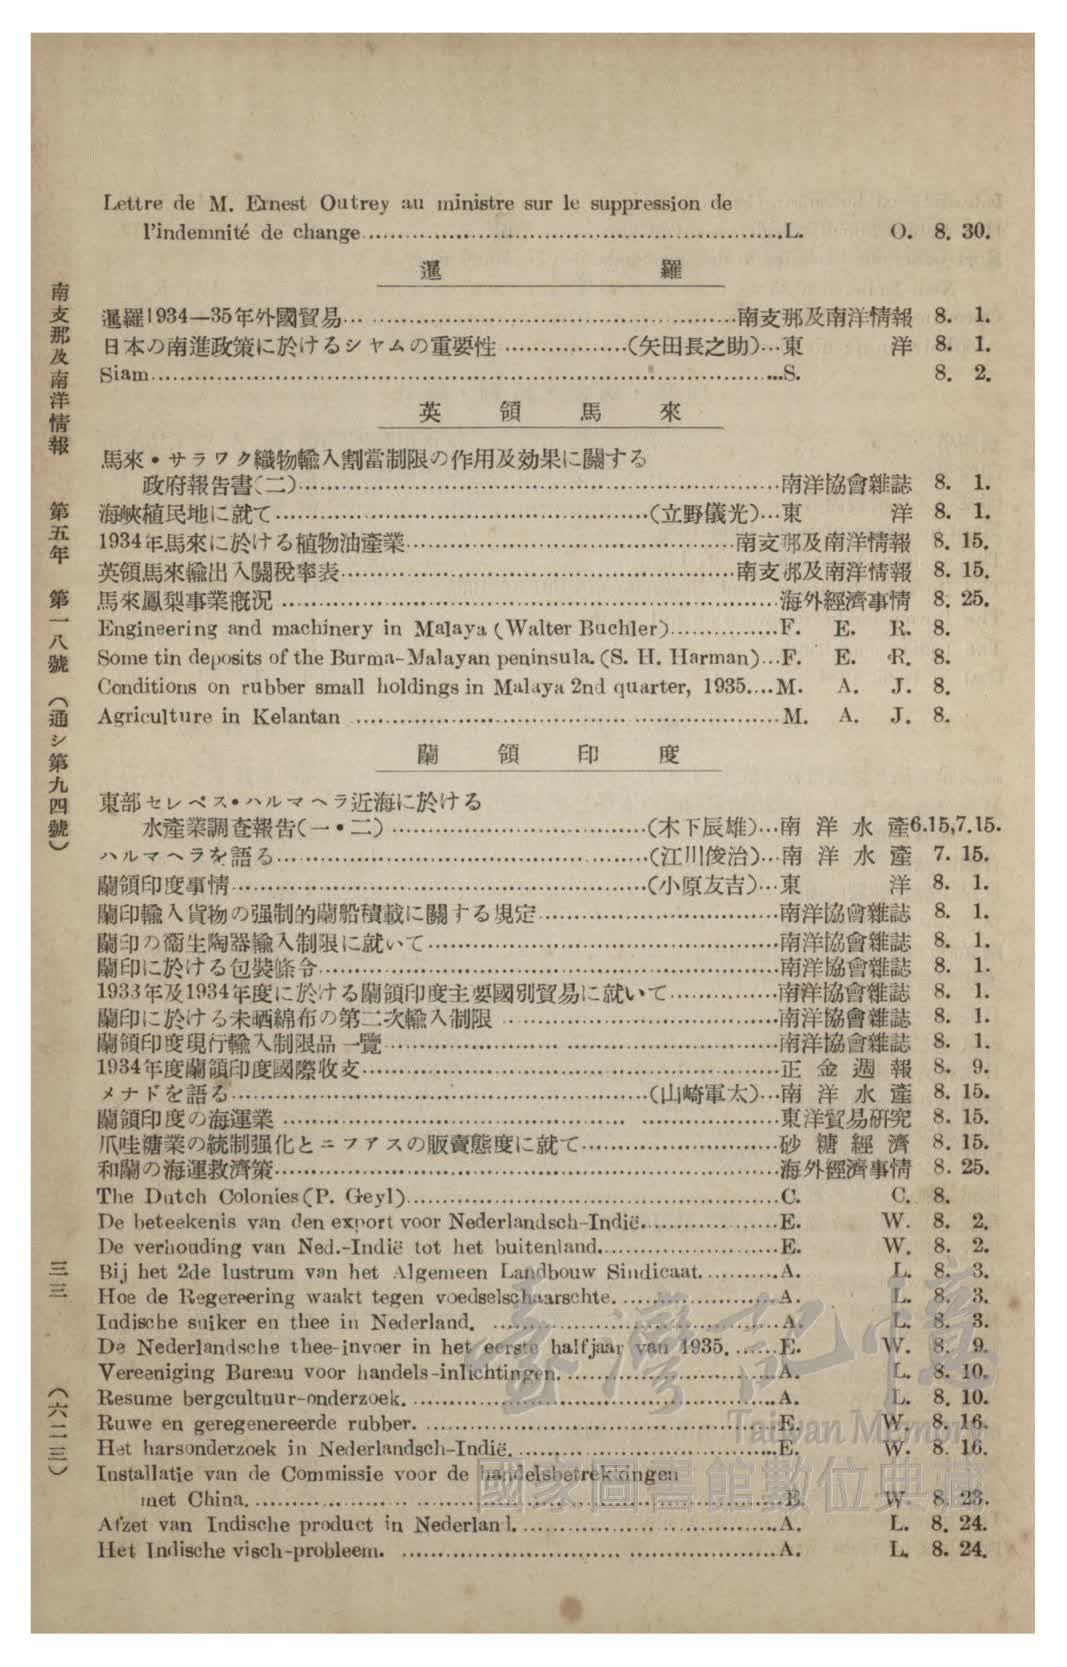 Lettre de M. Ernest Outrey au ministre sur le suppression de
l'indemnité de change……L. O. 8. 30.
暹羅
暹羅1934—35年外國貿易……南支那及南洋情報 8. 1.
日本の南進政策に於けるシヤムの重要性……(矢田長之助)…東洋 8. 1.
Siam……S. 8. 2.
英領馬來
馬來・サラワク織物輸入割當制限の作用及効果に關する
政府報告書(二)……南洋協會雜誌 8. 1.
海峽植民地に就て……(立野儀光)…東洋 8. 1.
1934年馬來に於ける植物油產業……南支那及南洋情報 8. 15.
英領馬來輸出入關稅率表……南支那及南洋情報 8. 15.
馬來鳳梨事業槪況……海外經濟事情 8. 25.
Engineering and machinery in Malaya (Walter Buchler)……F. E. R. 8.
Some tin deposits of the Burma-Malayan peninsula. (S. H. Harman)…F. E. R. 8.
Conditions on rubber small holdings in Malaya 2nd quarter, 1935....M. A. J. 8.
Agriculture in Kelantan……M. A. J. 8.
蘭領印度
東部セレベス・ハルマヘラ近海に於ける
水產業調查報告(一・二)……(木下辰雄)…南洋水產6.15,7.15.
ハルマヘラを語る……(江川俊治)…南洋水產 7. 15.
蘭領印度事情……(小原友吉)…東洋 8. 1.
蘭印輸入貨物の强制的蘭船積載に關する規定……南洋協會雜誌 8. 1.
蘭印の衞生陶器輸入制限に就いて……南洋協會雜誌 8. 1.
蘭印に於ける包裝條令……南洋協會雜誌 8. 1.
1933年及1934年度に於ける蘭領印度主要國別貿易に就いて……南洋協會雜誌 8. 1.
蘭印に於ける未晒綿布の第二次輸入制限……南洋協會雜誌 8. 1.
蘭領印度現行輸入制限品一覽……南洋協會雜誌 8. 1.
1934年度蘭領印度國際收支……正金週報 8. 9.
メナドを語る……(山崎軍太)…南洋水產 8. 15.
蘭領印度の海運業……東洋貿易硏究 8. 15.
爪哇糖業の統制强化とニフアスの販賣態度に就て……砂糖經濟 8. 15.
和蘭の海運救濟策……海外經濟事情 8. 25.
The Dutch Colonies (P. Geyl)……C. C. 8.
De beteekenis van den export voor Nederlandsch-Indië……E. W. 8. 2.
De verhouding van Ned.-Indië tot het buitenland……E. W. 8. 2.
Bij het 2de lustrum van het Algemeen Landbouw Sindicaat……A. L. 8. 3.
Hoe de Regereering waakt tegen voedselschaarschte……A. L. 8. 3.
Indische suiker en thee in Nederland.……A. L. 8. 3.
De Nederlandsche thee-invoer in het eerste halfjaar van 1935.……E. W. 8. 9.
Vereeniging Bureau voor handels-inlichtingen.……A. L. 8. 10.
Resume bergcultuur-onderzoek.……A. L. 8. 10.
Ruwe en geregenereerde rubber.……E. W. 8. 16.
Het harsonderzoek in Nederlandsch-Indië.……E. W. 8. 16.
Installatie van de Commissie voor de handelsbetrekkingen
met China.……E. W. 8. 23.
Afzet van Indische product in Nederland.……A. L. 8. 24.
Het Indische visch-probleem.……A. L. 8. 24.
南支那及南洋情報 第五年 第一八號 (通シ第九四號) 三三 (六二三)
臺灣記憶
Taiwan Memory
國家圖書館數位典藏